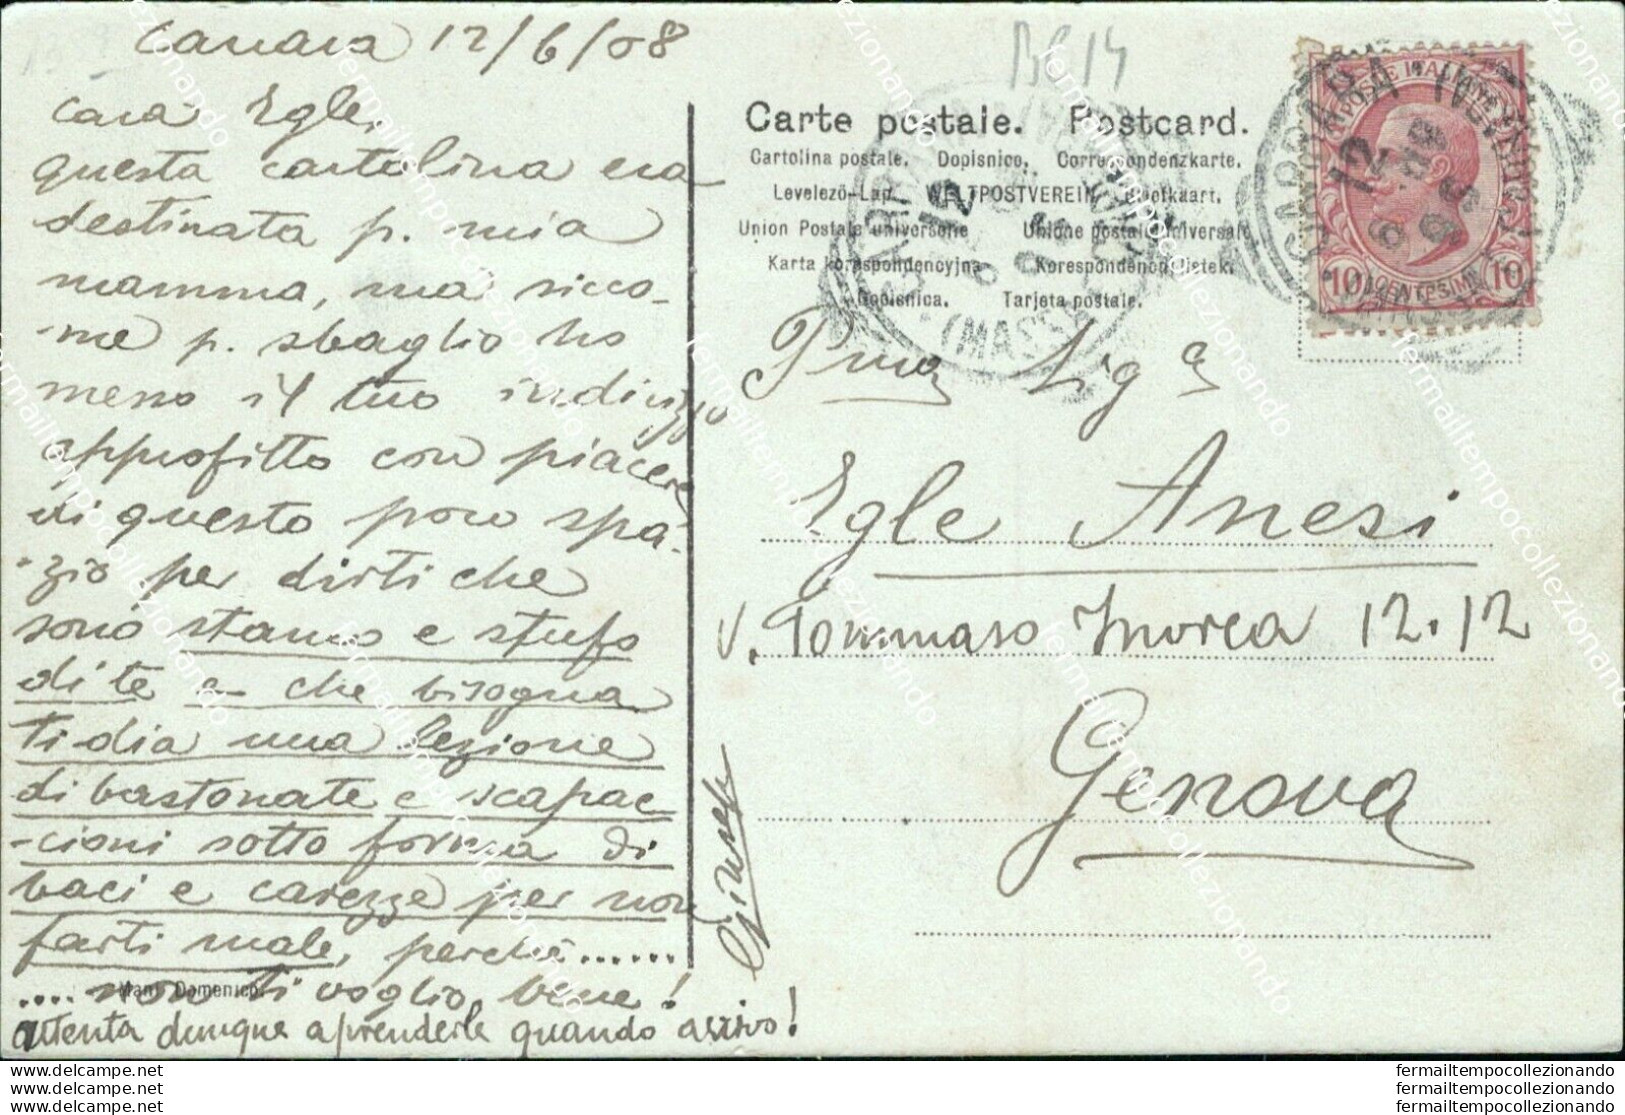 Carrara 12/6/08
Cara Egle,
questa cartolina era
destinata p. mia
mamma, ma sicco-
-me p. sbaglio ho
messo il tuo indirizzo
approfitto con piacere
di questo poco spa-
-zio per dirti che
sono stanco e stufo
di te e che bisogna
ti dia una lezione
di bastonate e scapac-
-cioni sotto forma di
baci e carezze per non
farti male, perchè......
.... non ti voglio bene!
attenta dunque a prenderle quando arrivo!
Mani Domenico.
BC14
Carte postale. Postcard.
Cartolina postale. Dopisnice. Correspondenzkarte.
Levelező-Lap. WELTPOSTVEREIN Briefkaart.
Union Postale universelle Unione postale universale
Karta korespondencyjna Korespondenčni listek.
Dopisnica. Tarjeta postale.
POSTE ITALIANE
10 CENTESIMI 10
CARRARA
(MASSA
12
Pma Sigа
Egle Anesi
V. Tommaso Invrea 12.12
Genova
www.delcampe.net
www.delcampe.net
www.delcampe.net
fermailtempocollezionando
fermailtempocollezionando
fermailtempocollezionando